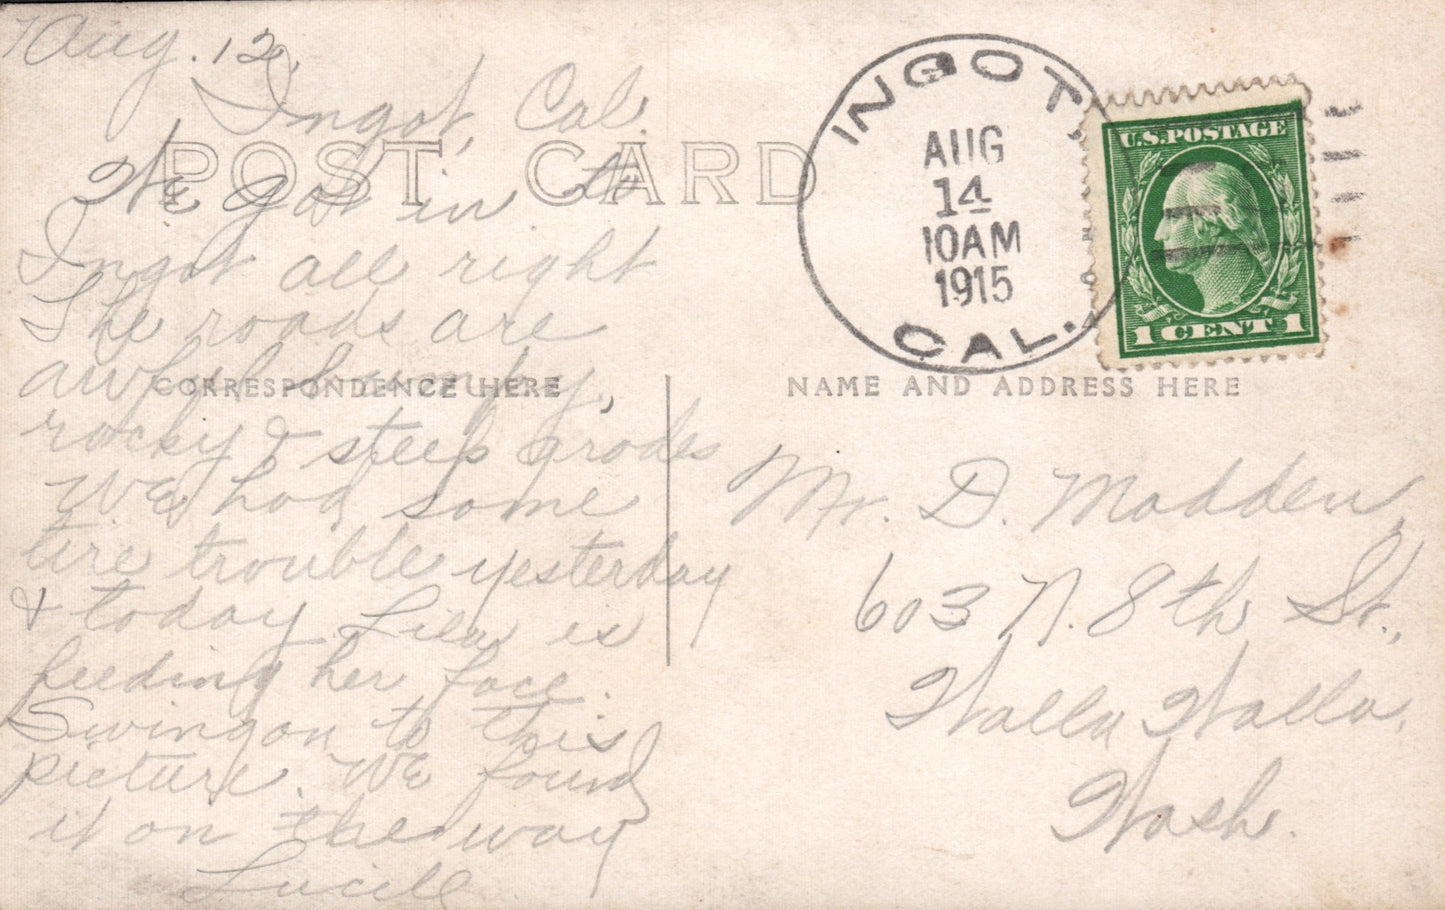 Aug. 12,
Ingot, Cal.
We got in to
Ingot all right
The roads are
awful bumpy,
rocky & steep grades
We had some
tire trouble yesterday
& today is
feeding her face.
Swing on to this
picture. We found
it on the way
Lucile
POST CARD
CORRESPONDENCE HERE
NAME AND ADDRESS HERE
INGOT,
AUG
14
10AM
1915
CAL.
U.S. POSTAGE
1 CENT 1
Mr. D. Madden,
603 N. 8th St.,
Walla Walla,
Wash.